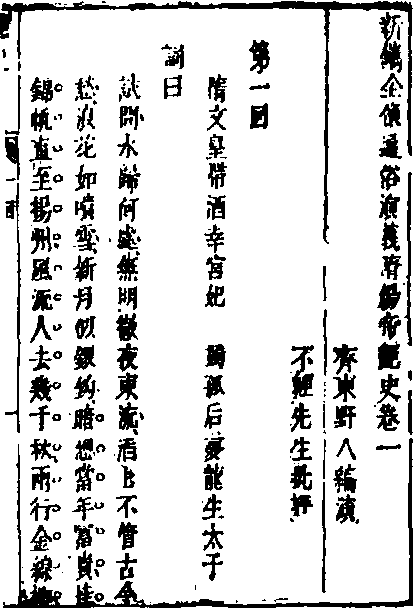 新鐫全像通俗演義隋煬帝艷史卷一
齊東野人編演
不經先生批評
第一回
隋文皇帶酒幸宮妃　獨孤后夢龍生太子
詞曰
試問水歸何處無明徹夜東流滔滔不管古今
愁浪花如噴雪新月似銀鉤暗想當年富貴挂
錦帆直至揚州風流人去幾千秋兩行金線柳